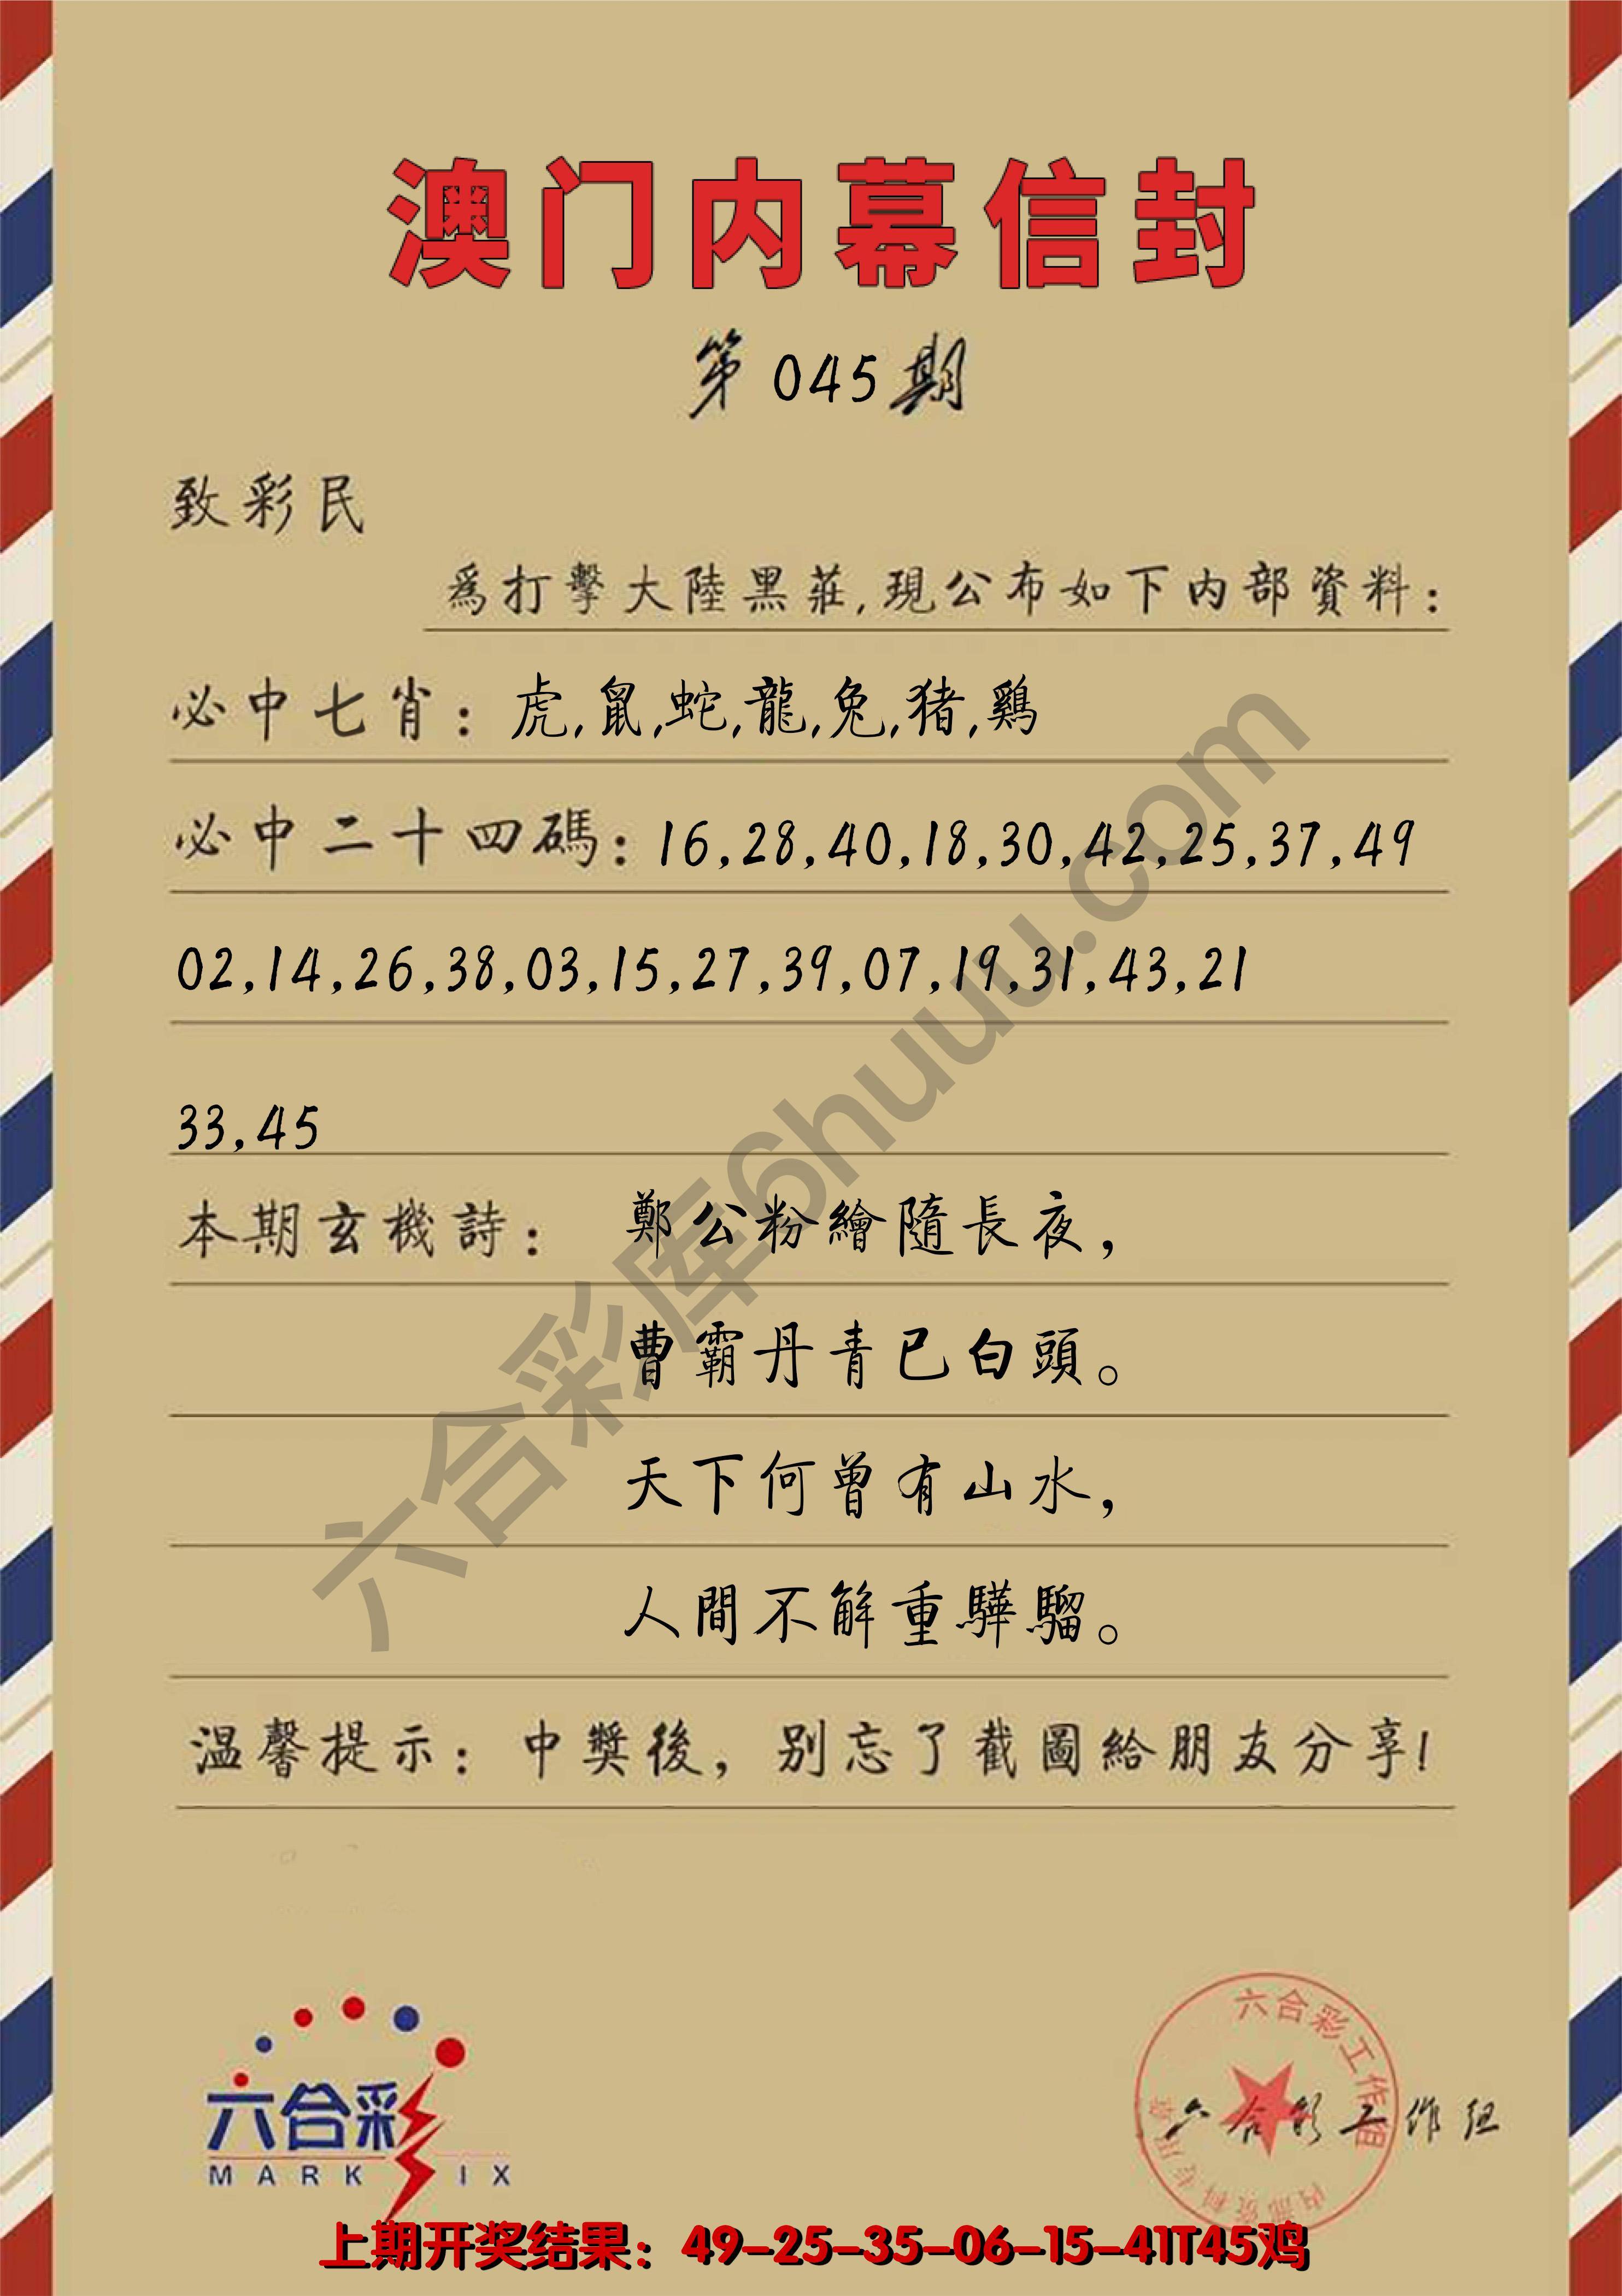 澳门内幕信封
第045期
致彩民
爲打擊大陸黑莊,現公布如下内部資料:
必中七肖: 虎,鼠,蛇,龍,兔,猪,鷄
必中二十四碼: 16,28,40,18,30,42,25,37,49
02,14,26,38,03,15,27,39,07,19,31,43,21
33,45
本期玄機詩: 鄭公粉繪隨長夜,
曹霸丹青已白頭。
天下何曾有山水,
人間不解重驊騮。
温馨提示: 中獎後, 别忘了截圖給朋友分享!
六合彩库6huuu.com
六合彩
MARK SIX
六合彩工作组
内部资料专用章
六合彩工作组
上期开奖结果: 49-25-35-06-15-41T45鸡